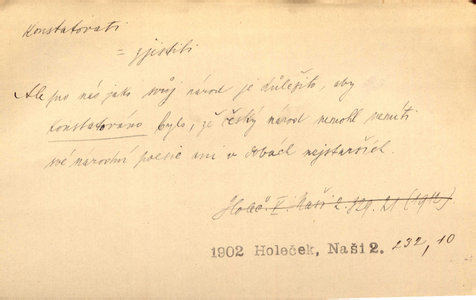 Konstatovati
= zjistiti
Ale pro nás jako svůj národ je důležito, aby
konstatováno bylo, že český národ nemohl
své národní poesie ani v dobách nejstarších.
Holeč. I. Naši 2. 21 (1902)
1902 Holeček, Naši 2. 232, 10